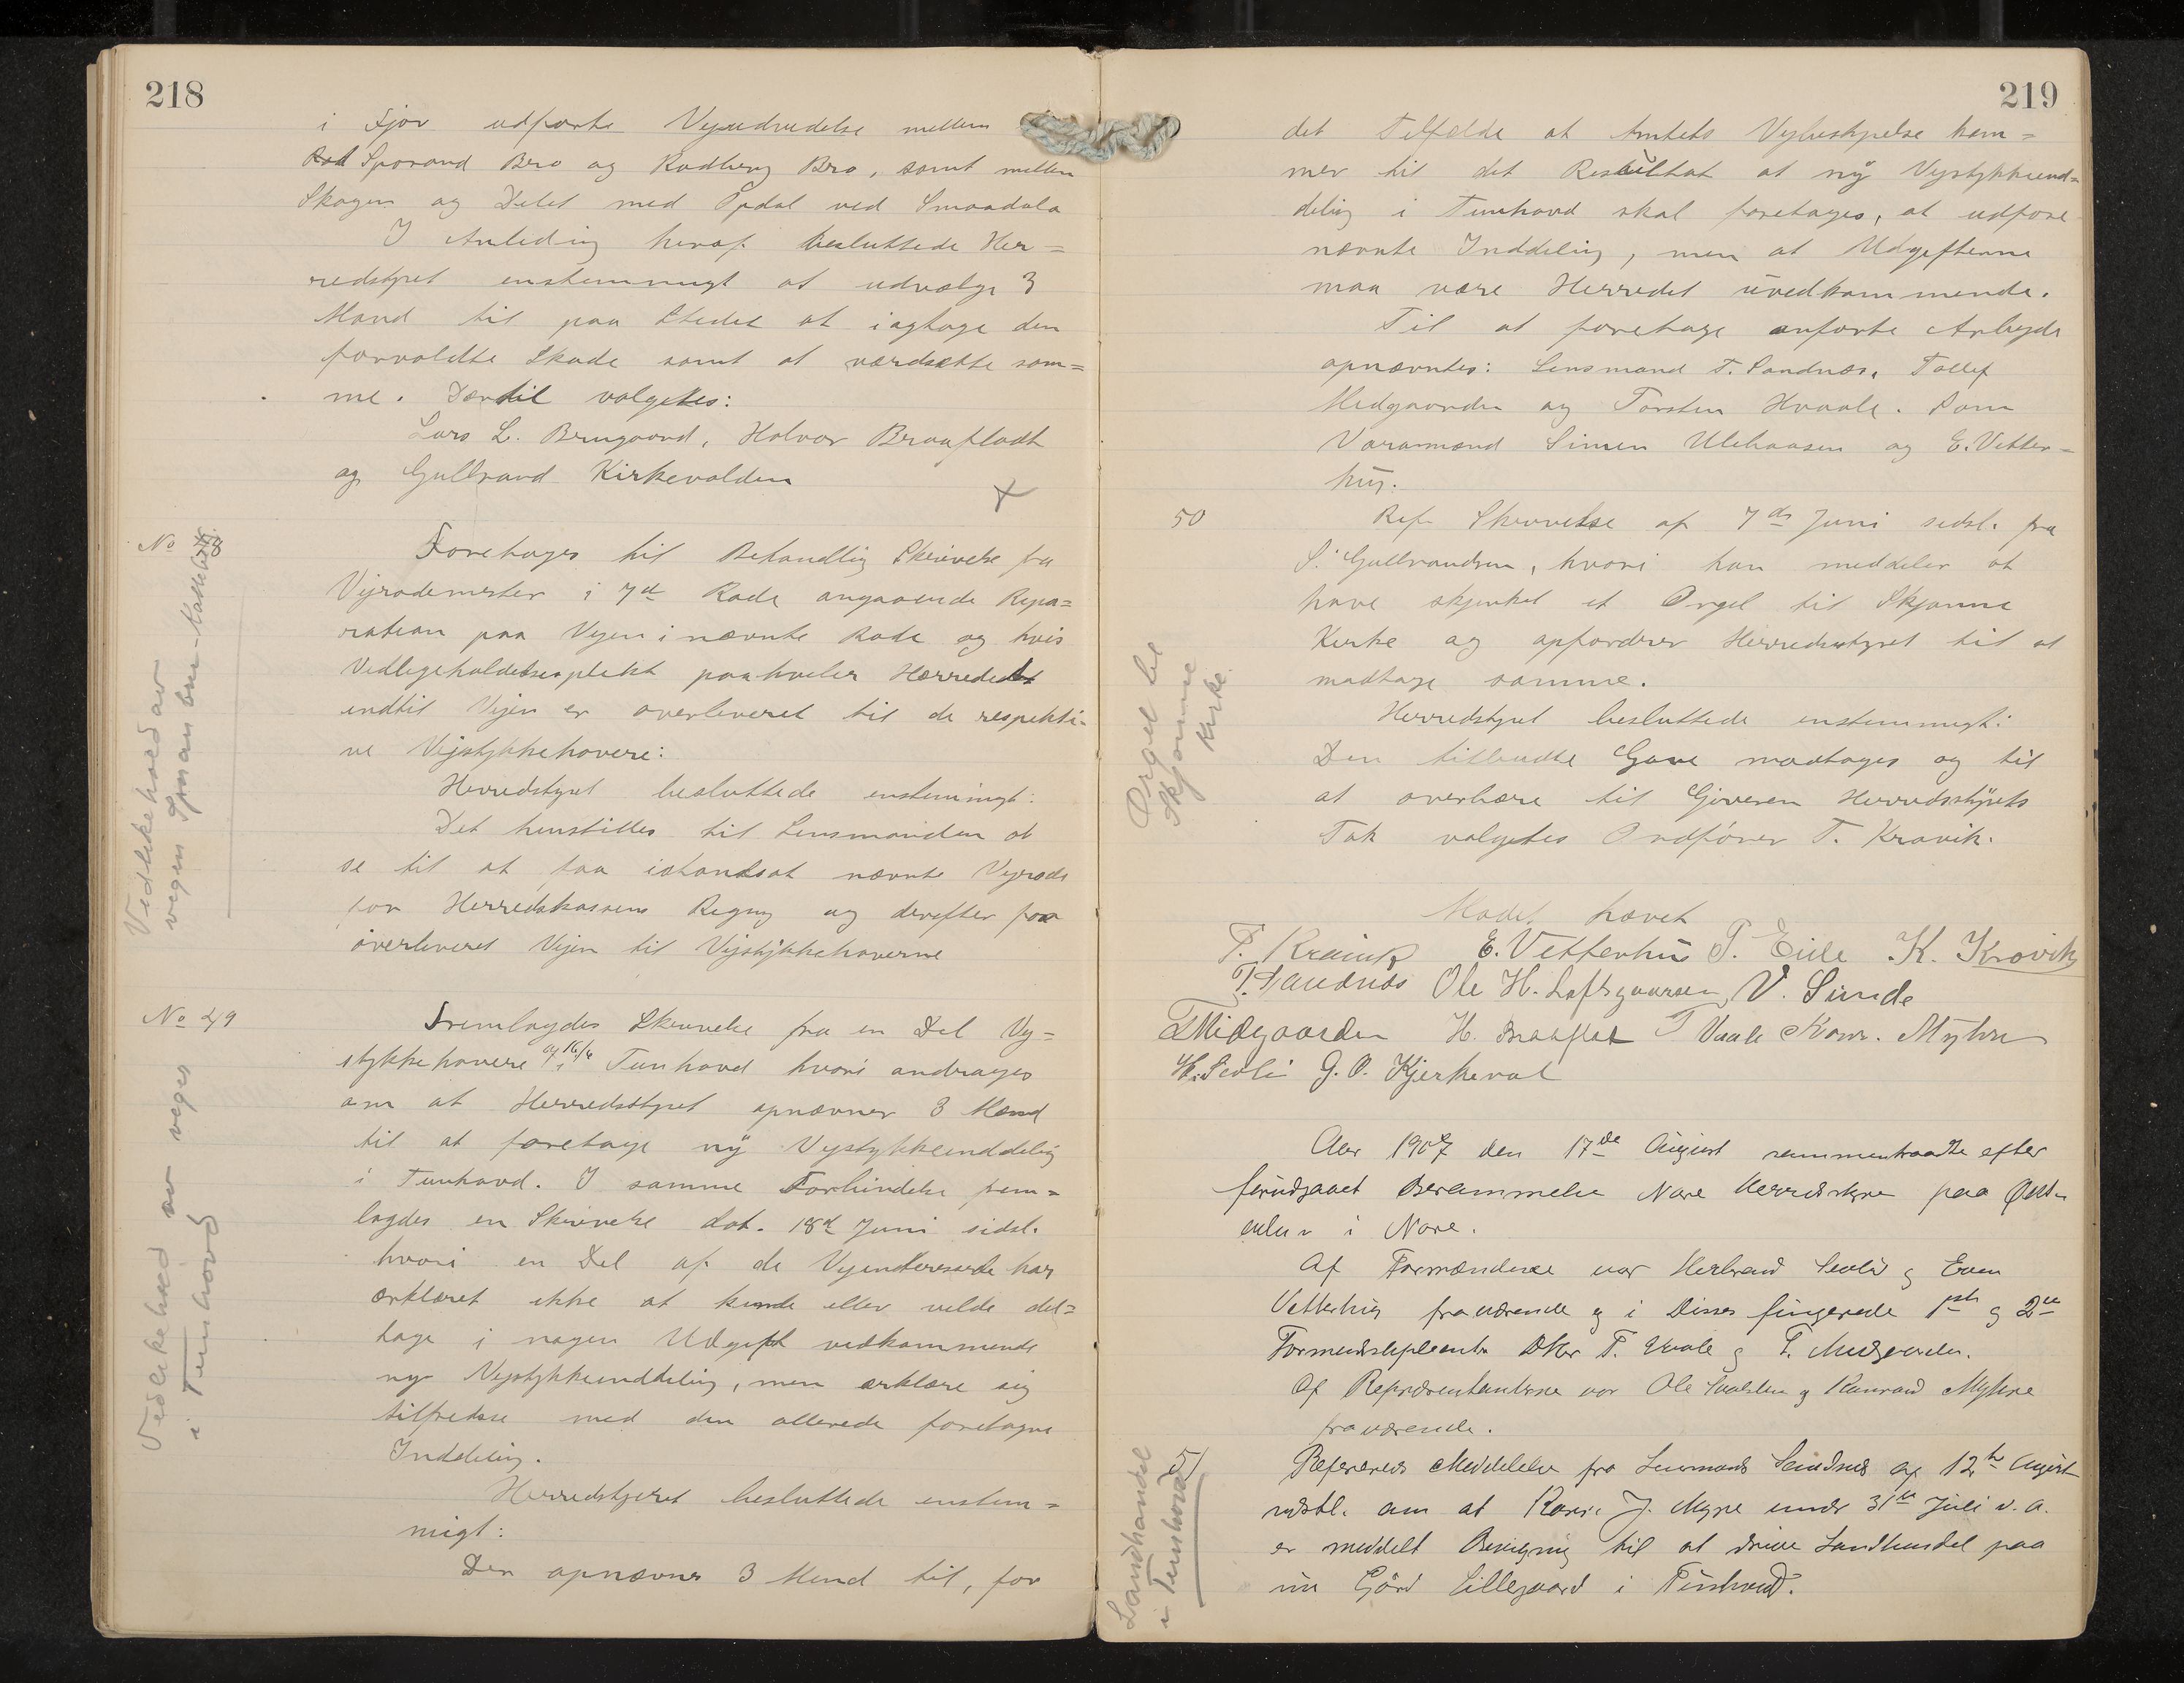 218
i Fjor udførte Vejudvidelse mellem
Sporand Bro og Rødberg Bro, samt mellem
Skogen og Delet med Opdal ved Smaadøla
I Anledning heraf besluttede Her=
redstyret enstemmigt at udvælge 3
Mænd til paa Stedet at iagtage den
forvoldte Skade samt at værdsætte sam=
me. Dertil valgtes:
Lars L. Brugaard, Halvor Braafladt
og Gullrand Kirkevolden
No 48
Vedlikehold av
vegen
Foretoges til Behandling Skrivelse fra
Vejrodemester i 7de Rode angaaende Repa=
ration paa Vejen i nævnte Rode og hvis
Vedligeholdelsesplikt paahviler Herredet
indtil Vejen er overleveret til de respekti=
ve Vejstykkehavere:
Herredstyret besluttede enstemmigt:
Det henstilles til Lensmanden at
se til at faa istandsat nævnte Vejrode
for Herredskassens Regning og derefter faa
overleveret Vejen til Vejstykkehaverne
No 49
Vedlikehold av veger
i Tunhovd
Fremlagdes Skrivelse fra en Del Vej=
stykkehavere af 16/6 i Tunhovd hvori andrages
om at Herredsstyret opnævner 3 Mænd
til at foretage ny Vejstykkeinddeling
i Tunhovd. I samme Forbindelse frem=
lagdes en Skrivelse dat. 18de Juni sidstl.
hvori en Del af de Vejinteresserede har
erklæret ikke at kunde eller vilde del=
tage i nogen Udgift vedkommende
ny Vejstykkeinddeling, men erklære sig
tilfredse med den allerede foretagne
Inddeling.
Herredstyret besluttede enstem=
migt:
Der opnævnes 3 Mend til, for
219
det Tilfælde at Amtets Vejbestyrelse kom=
mer til det Resultat at ny Vejstykkeind=
deling i Tunhovd skal foretages, at udføre
nævnte Inddeling, men at Udgifterne
maa være Herredet uvedkommende.
Til at foretage anførte Arbejde
opnævntes: Lensmand T. Sandnæs, Tollef
Medgaarden og Torsten Hvaale. Som
Varamænd Simen Ulehaasen og E. Vetter=
hus.
50
Orgel til
Skjønne
Kirke.
Ref. Skrivelse af 7de Juni sidstl. fra
S. Gullrandsen, hvori han meddeler at
have skjenket et Orgel til Skjønne
Kirke og opfordrer Herredsstyret til at
modtage samme.
Herredstyret besluttede enstemmigt:
Den tilbudte Gave modtages og til
at overbære til Giveren Herredsstyrets
Tak valgtes Ordfører T. Kravik.
Mødet hævet
T. Kravik E. Vetterhus T. Eide K. Kravik
T. Sandnæs Ole H. Loftsgaarden V. Sunde
T Midgaarden H. Braaflat T Vaale Konr. Myhre
H. Sevli G. O. Kjerkevol
Aar 1907 den 17de August sammentraadte efter
forudgaaet Berammelse Nore Herredsstyre paa
i Nore.
Af Formændene var Herbrand Sevli og Even
Vetterhus fraværende og i Disses fungerede 1ste og 2de
Formandssupleanter DHrr T. Vaale og T. Midgaarden.
Af Repræsentanterne var Ole og Konrad Myhre
fraværende.
51
Landhandel
i Tunhovd
Refereres Meddelelse fra Lensmand Sandnes af 12te August
sidstl. om at J. Myre under 31te Juli d. A.
er meddelt Bevilgning til at drive Landhandel paa
sin Gård Lillegaard i Tunhovd.